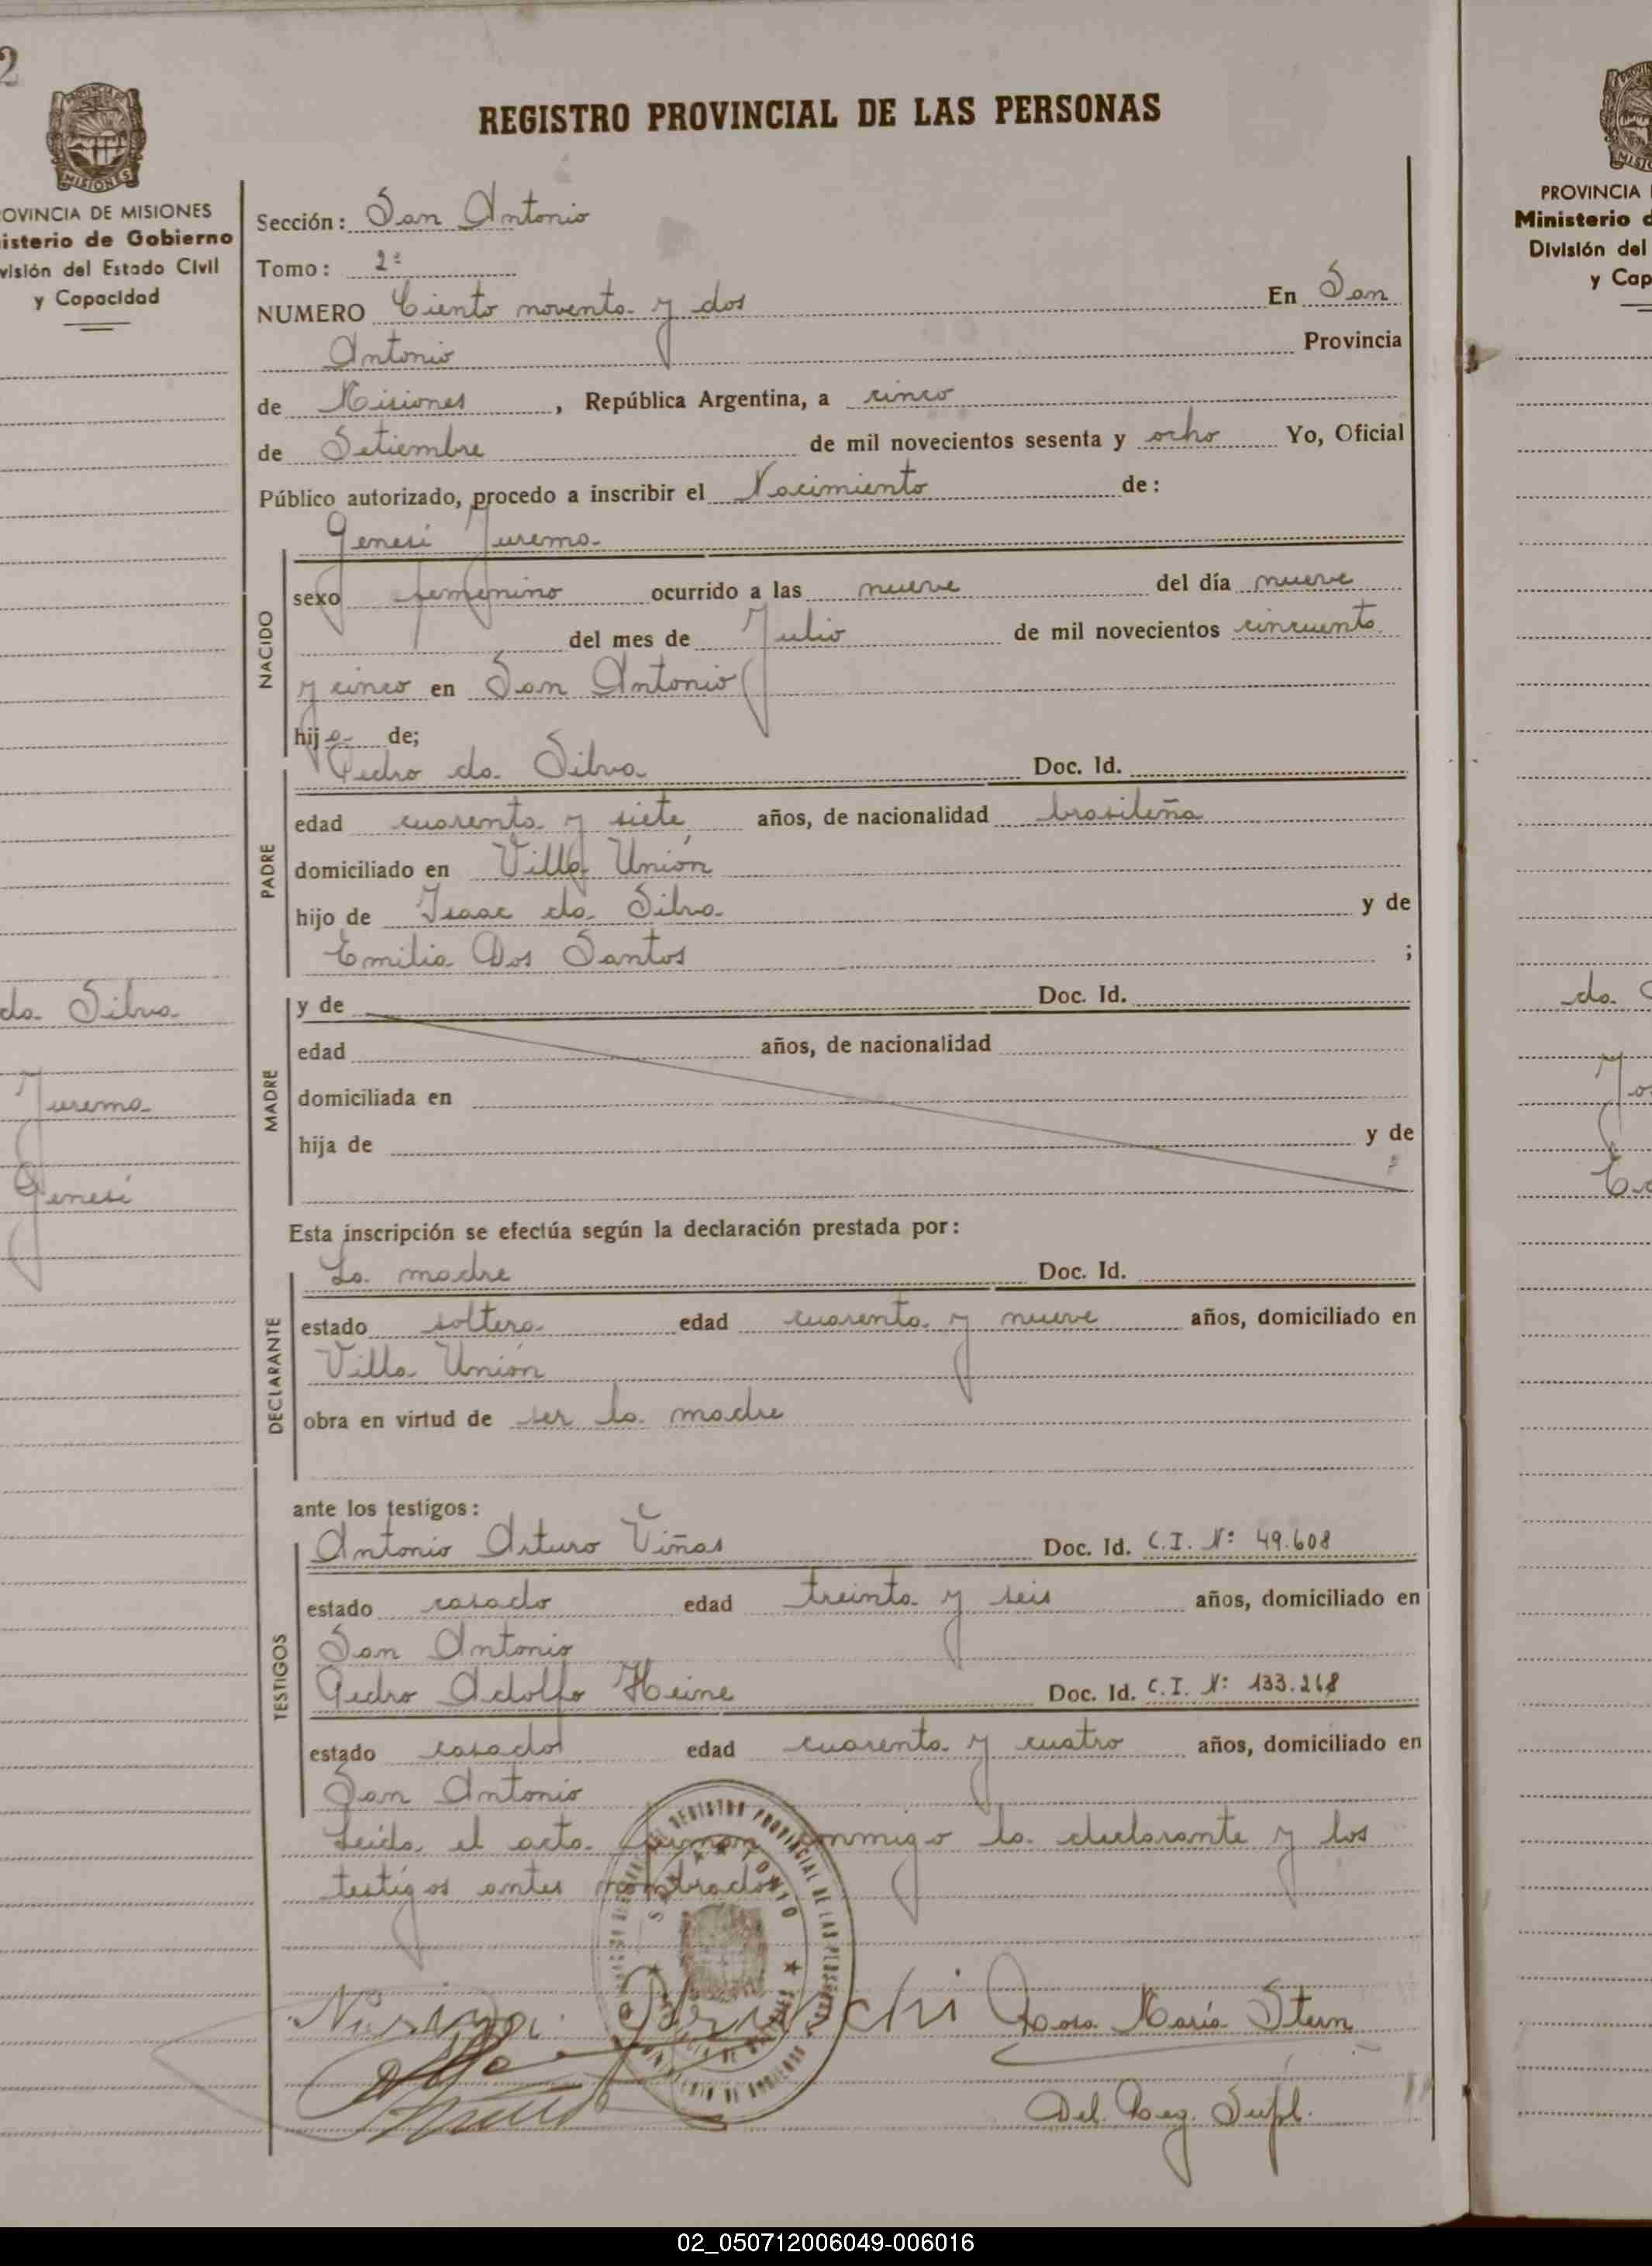 2
REGISTRO PROVINCIAL DE LAS PERSONAS
MISIONES
OVINCIA DE MISIONES
isterio de Gobierno
visión del Estado Civil
y Capacidad
Sección: San Antonio
Tomo: 2º
NUMERO Ciento noventa y dos En San
Antonio Provincia
de Misiones, República Argentina, a cinco
de Setiembre de mil novecientos sesenta y ocho Yo, Oficial
Público autorizado, procedo a inscribir el Nacimiento de:
Genesi Jurema
NACIDO
sexo femenino ocurrido a las nueve del día nueve
del mes de Julio de mil novecientos cincuenta
y cinco en San Antonio
hija de;
PADRE
Pedro da Silva Doc. Id.
edad cuarenta y siete años, de nacionalidad brasileña
domiciliado en Villa Unión
hijo de Isaac da Silva y de
Emilia Dos Santos ;
MADRE
y de Doc. Id.
edad años, de nacionalidad
domiciliada en
hija de y de
da Silva
Jurema
Genesi
Esta inscripción se efectúa según la declaración prestada por:
DECLARANTE
La madre Doc. Id.
estado soltera edad cuarenta y nueve años, domiciliado en
Villa Unión
obra en virtud de ser la madre
ante los testigos:
TESTIGOS
Antonio Arturo Viñas Doc. Id. C.I. Nº 49.608
estado casado edad treinta y seis años, domiciliado en
San Antonio
Pedro Adolfo Heine Doc. Id. C.I. Nº 133.268
estado casado edad cuarenta y cuatro años, domiciliado en
San Antonio
Leída el acta firman conmigo la declarante y los
testigos antes nombrados
REGISTRO PROVINCIAL DE LAS PERSONAS
SAN ANTONIO
Rosa María Stern
Del. Reg. Supl.
PROVINCIA
Ministerio d
División del
y Cap
da
02_050712006049-006016